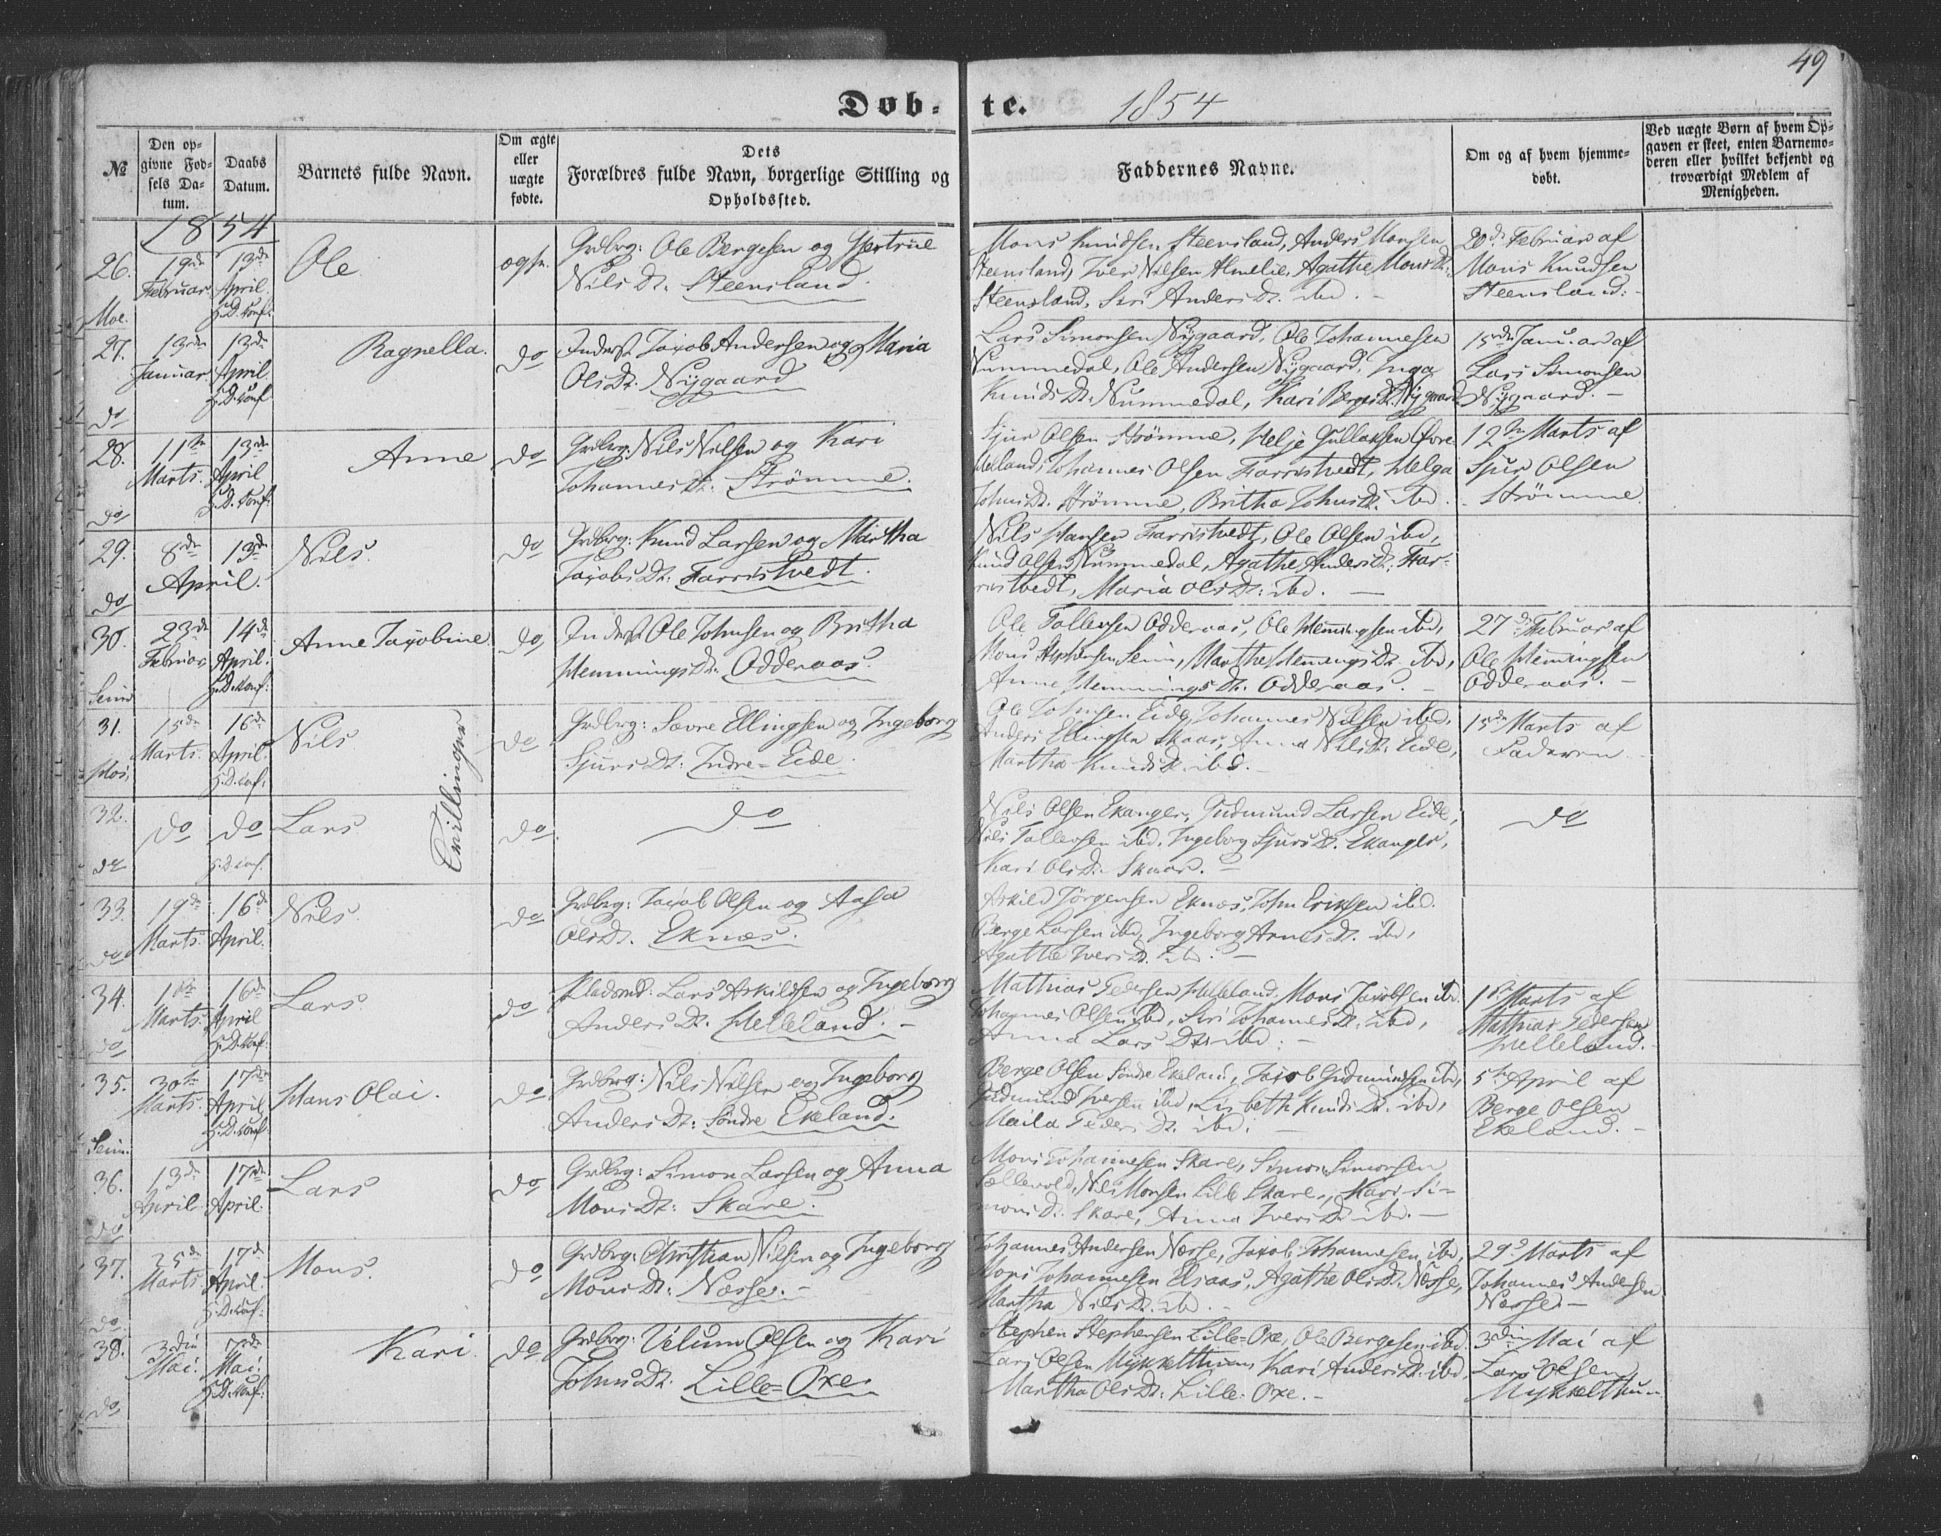 49
Døb- te. 1854
№
Den op-
givne Fød-
sels Da-
tum.
Daabs
Datum.
Barnets fulde Navn.
Om ægte
eller
uægte
fødte.
Dets
Forældres fulde Navn, borgerlige Stilling og
Opholdssted.
Faddernes Navne.
Om og af hvem hjemme-
døbt.
Ved uægte Børn af hvem Op-
gaven er skeet, enten Barnemo-
deren eller hvilket bekjendt og
troværdigt Medlem af
Menigheden.
1854
26.
Moe.
19de
Februar.
13de
April.
H:D:Conf:
Ole
Grdbrg: Ole Bergesen og Gjertrue
Nils Dt. Steensland.
Mons Knudsen Steensland, Anders Monsen
Steensland, Iver Nilsen Almelie, Agathe Mons Dt.
Steensland, Siri Anders Dt. ibd.
20de Februar af
Mons Knudsen
Steensland.
27.
do
13de
Januar.
13de
April
H:D:Conf
Ragnella.
do
Inderst Jacob Andersen og Maria
Ols Dt. Nygaard
Lars Simonsen Nygaard, Ole Johannesen
Nummedal, Ole Andersen Nygaard, Inga
Knuds Dt. Nummedal, Kari Berges Dt. Nygaard
15de Januar af
Lars Simonsen
Nygaard.
28.
do
11te
Marts.
13de
April
H:D:Conf:
Anne
do
Grdbrg: Nils Nilsen og Kari
Johannes Dt. Strømme.
Sjur Olsen Strømme, Helje Gullaksen Øvre
Helland, Johannes Olsen Farristvedt, Helga
Johns Dt. Strømme, Britha Johns Dt. ibd.
12te Marts af
Sjur Olsen
Strømme.
29.
do
8de
13de
April.
Nils.
do
Grdbrg: Knud Larsen og Martha
Jacobs Dt. Farristvedt.
Nils Hansen Farristvedt, Ole Olsen ibd,
Knud Olsen Nummedal, Agathe Anders Dt. Far-
ristvedt, Maria Ols Dt. ibd.
30.
Seim
23de
Februar
14de
April.
H:D:Conf:
Anne Jacobine
do
Inderst Ole Johnsen og Britha
Hemmings Dt. Odderaas.
Ole Tollefsen Odderaas, Ole Hemmingsen ibd,
Mons Stephensen Seim, Marthe Hemmings Dt. ibd,
Anne Hemmings Dt. Odderaas.
27de Februar af
Ole Hemmingsen
Odderaas.
31.
15de
Marts.
16de
April.
H:D:Conf:
Nils
Tvillinger
do
Grdbrg: Sævre Ellingsen og Ingeborg
Sjurs Dt: Indre-Eide.
Ole Johnsen Eide, Johannes Nilsen ibd,
Anders Ellingsen Skaar, Anna Nils Dt. Eide,
Martha Knuds Dt. ibd.
15de Marts af
Faderen
32.
do
do
do
H:D:Conf.
Lars
do.
do
Nils Olsen Ekanger, Gudmund Larsen Eide,
Nils Tollefsen ibd, Ingeborg Sjurs Dt. Ekanger,
Kari Ols Dt. Skaar.
do
33.
do
19de
Marts.
16de
April.
Nils.
do
Grdbrg: Jacob Olsen og Aasa
Ols Dt. Eknæs.
Askild Jörgensen Eknæs, John Eriksen ibd.
Berge Larsen ibd, Ingeborg Arnes Dt. ibd,
Agathe Ivers Dt. ibd.
34.
do
1ste
Marts.
16de
April
H:D:Conf:
Lars
do
Pladsmd: Lars Askildsen og Ingeborg
Anders Dt. Helleland.
Mathias Pedersen Helleland, Mons Jacobsen ibd.
Johannes Olsen ibd, Siri Johannes Dt. ibd,
Anna Lars Dt. ibd.
1ste Marts af
Mathias Pedersen
Helleland.
35.
Seim.
30te
Marts.
17de
April,
H:D:Conf:
Hans Olai.
do
Grdbrg: Nils Nilsen og Ingeborg
Anders Dt: Söndre Ekeland.
Berge Olsen Söndre Ekeland, Jacob Gudmundsen ibd,
Gudmund Iversen ibd, Lisbeth Knuds Dt. ibd,
Maila Peders Dt. ibd.
5te April af
Berge Olsen
Ekeland.
36.
do
13de
April
17de
April.
Lars
do
Grdbrg: Simon Larsen og Anna
Mons Dt: Skare.
Mons Johannesen Skare, Simon Simonsen
Sellevold, Nils Monsen Lille Skare, Kari Si-
mons Dt. Skare, Anna Ivers Dt. ibd.
37.
do
25de
Marts
17de
April.
H:D:Conf:
Mons.
do
Grdbrg: Christian Nilsen og Ingeborg
Mons Dt: Næsse.
Johannes Andersen Næsse, Jacob Johannesen ibd,
Mons Johannesen Elsaas, Agathe Ols Dt. Næsse,
Martha Nils Dt. ibd.
29de Marts af
Johannes Andersen
Næsse.
38.
do
3die
Mai.
7de
Mai.
H:D:Conf:
Kari
do
Grdbrg: Vilum Olsen og Kari
Johns Dt. Lille-Oxe.
Stephen Stephensen Lille-Oxe, Ole Bergesen ibd.
Lars Olsen Mykkelthun, Kari Anders Dt. ibd,
Martha Ols Dt. Lille-Oxe.
3die Mai af
Lars Olsen
Mykkelthun